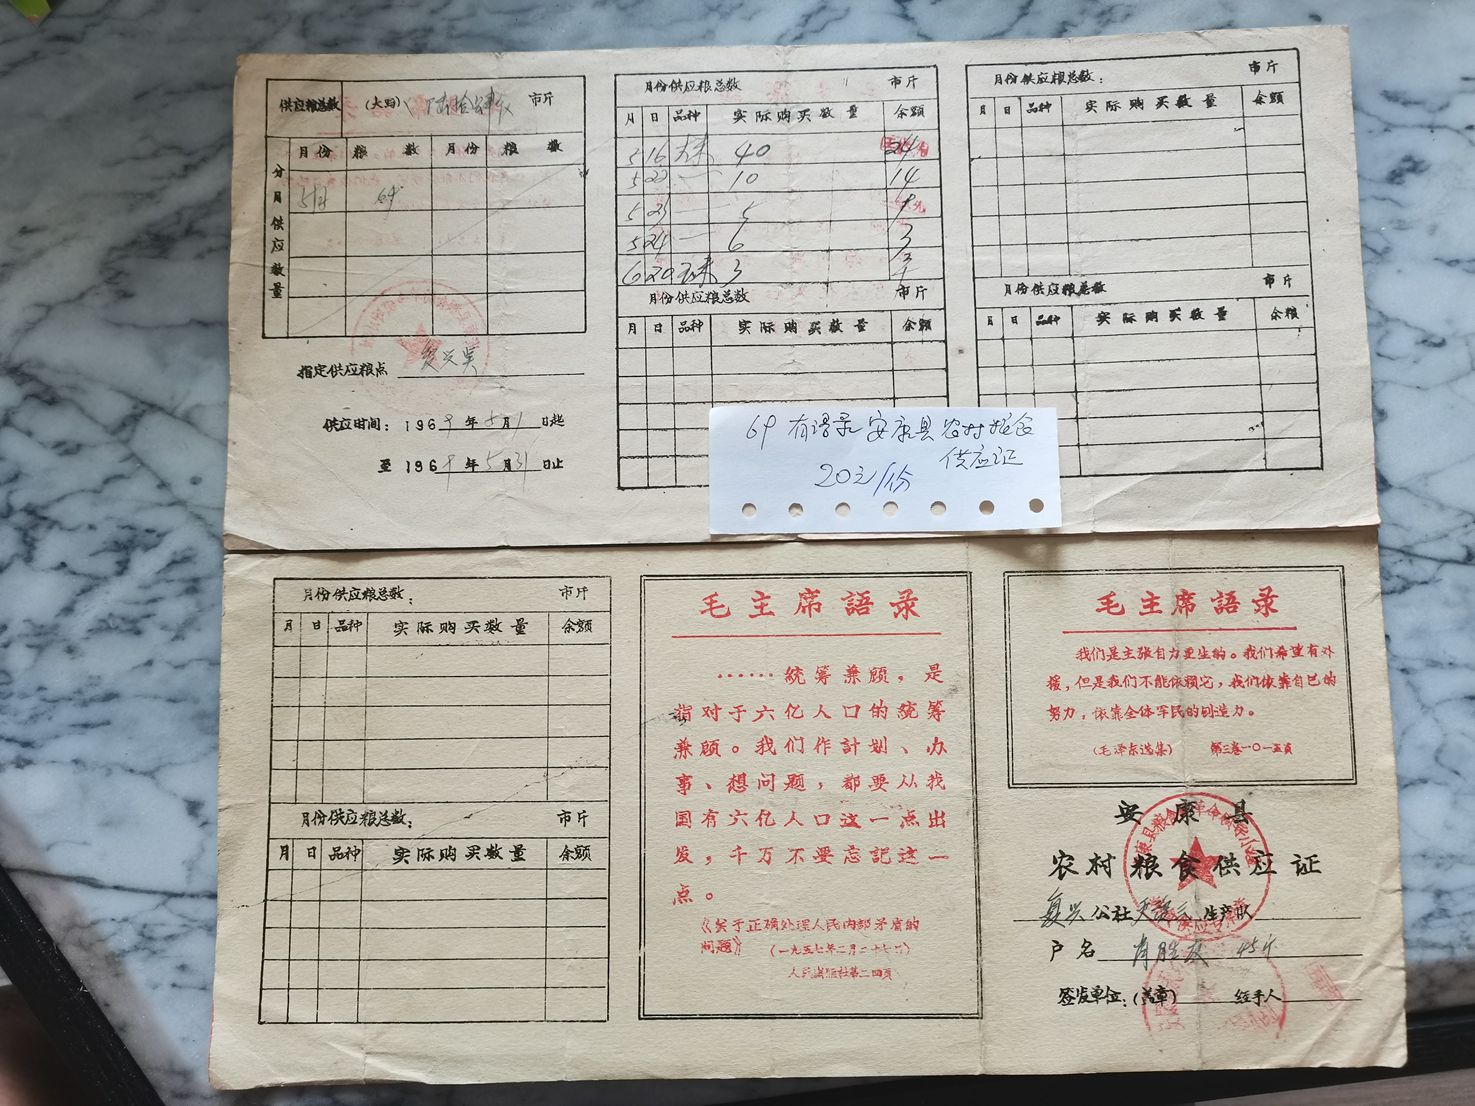 供应粮总数 (大写) 市斤
分月供应数量
月份 粮 数 月份 粮 数
5月 64
指定供应粮点 复兴
供应时间: 1969年5月1日起
至 1969年5月31日止
月份供应粮总数 市斤
月 日 品种 实际购买数量 余额
5 16 大米 40 24
5 22 一 10 14
5 23 一 5 9
5 24 一 6 3
6 20 3
月份供应粮总数 市斤
月 日 品种 实际购买数量 余额
月份供应粮总数: 市斤
月 日 品种 实际购买数量 余额
月份供应粮总数 市斤
月 日 品种 实际购买数量 余粮
69有语录安康县农村粮食
供应证
20元/份
月份供应粮总数: 市斤
月 日 品种 实际购买数量 余额
月份供应粮总数: 市斤
月 日 品种 实际购买数量 余额
毛主席語录
……統筹兼顾，是
指对于六亿人口的统筹
兼顾。我们作計划、办
事、想问题，都要从我
国有六亿人口这一点出
发，千万不要忘記这一
点。
《关于正确处理人民内部矛盾的
问题》（一九五七年二月二十七日）
人民出版社第二四頁
毛主席語录
我们是主張自力更生的。我们希望有外
援，但是我们不能依賴它，我们依靠自己的
努力，依靠全体军民的創造力。
（毛泽东选集） 第三卷一〇一五頁
安康县
农村粮食供应证
复兴公社 生产队
户名 45斤
签发单位:(盖章) 经手人